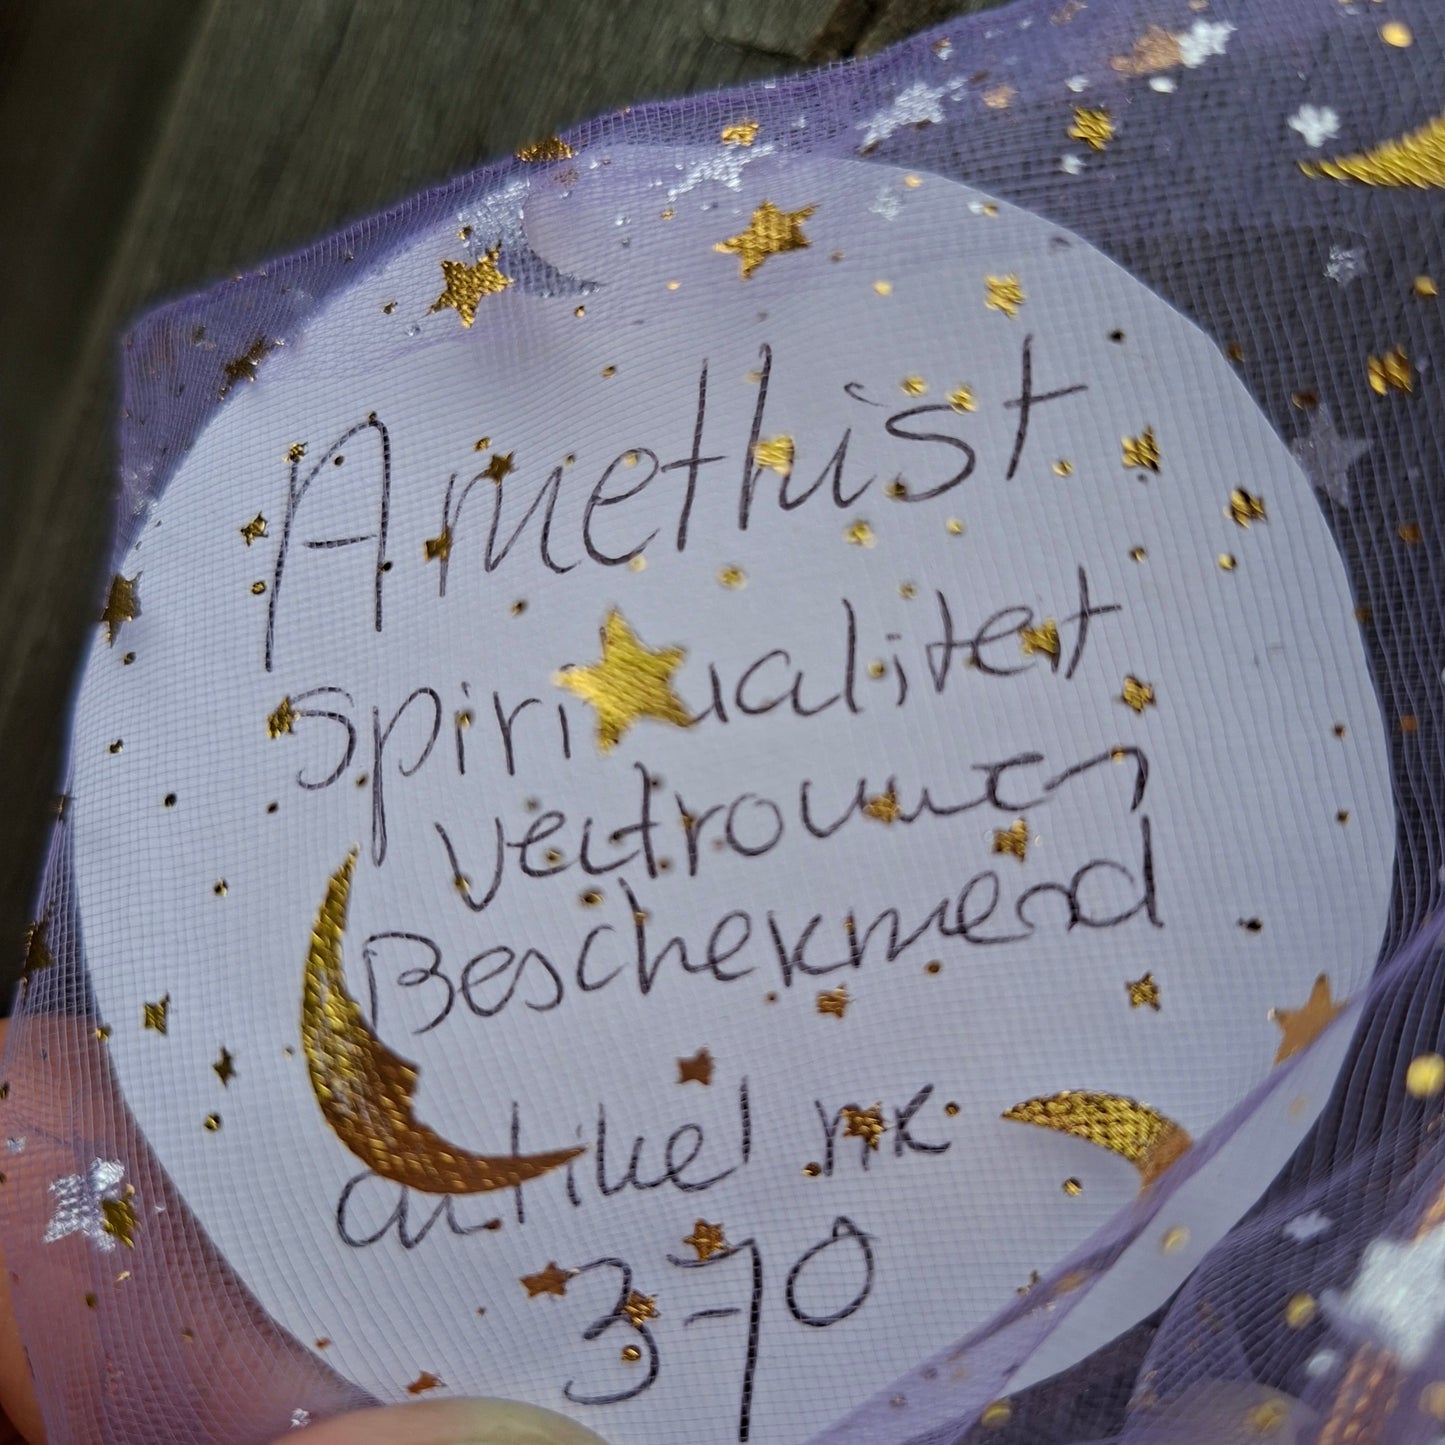 Amethist
spiritualiteit
vertrouwen
Beschermend
artikel nr
370